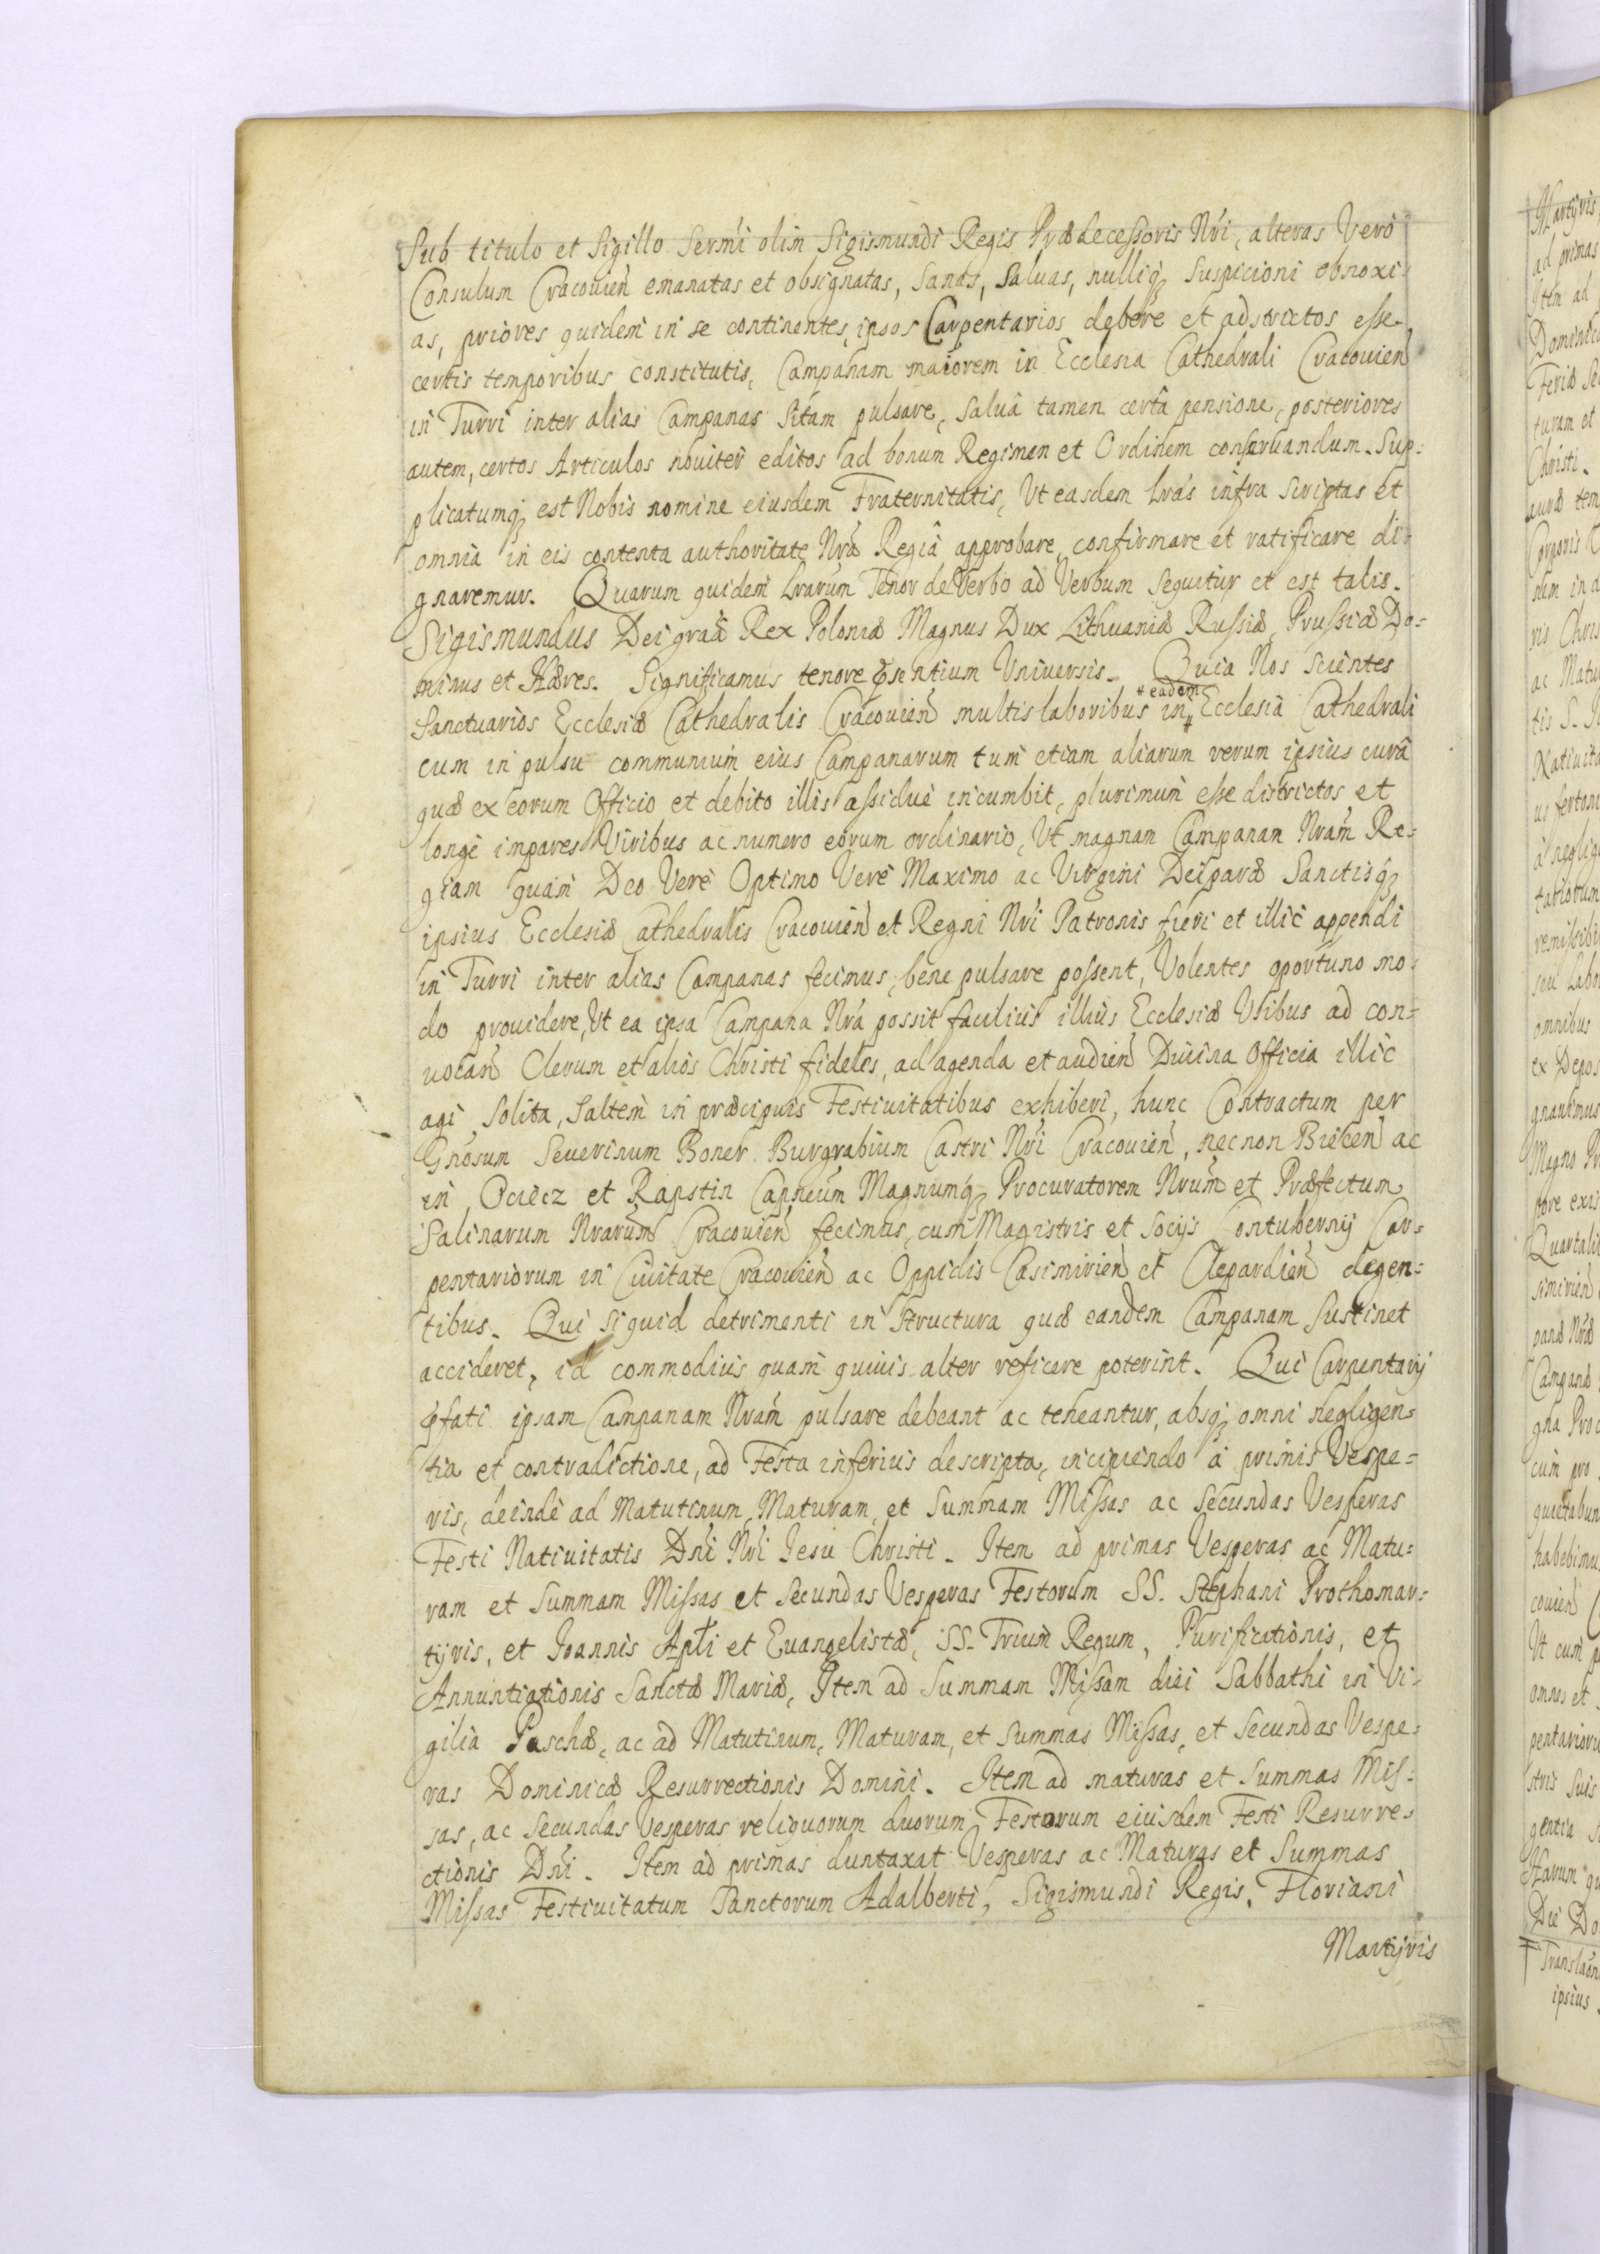 Sub titulo et Sigillo Sermi olim Sigismundi Regis Prædecessoris Nri, alteras Verò
Consulum Cracouien emanatas et obsignatas, sanas, saluas, nulliq; suspicioni obnoxi-
as, priores quidem in se continentes, ipsos Carpentarios debere et adstrictos esse
certis temporibus constitutis, Campanam maiorem in Ecclesia Cathedrali Cracouien
in Turri inter alias Campanas sitam pulsare, saluâ tamen certâ pensione, posteriores
autem, certos Articulos nouiter editos ad bonum Regimen et Ordinem conseruandum. Sup-
plicatumq; est Nobis nomine eiusdem Fraternitatis, Vt easdem Lras infra scriptas et
omnia in eis contenta authoritate Nra Regiâ approbare, confirmare et ratificare di-
gnaremur. Quarum quidem Lrarum Tenor de Verbo ad Verbum sequitur et est talis.
Sigismundus Dei graã Rex Poloniæ Magnus Dux Lithuaniæ Russiæ, Prussiæ Do-
minus et Hæres. Significamus tenore pñsentium Vniversis. Quia Nos scientes
+ eadem
Sanctuarios Ecclesiæ Cathedralis Cracouien multis laboribus in + Ecclesia Cathedrali
cum in pulsu communium eius Campanarum tum etiam aliarum rerum ipsius curâ
quæ ex eorum Officio et debito illis assiduè incumbit, plurimum esse districtos et
longè impares Viribus ac numero eorum ordinario, Vt magnam Campanam Nram Re-
giam quam Deo Verè Optimo Verè Maximo ac Virgini Deiparæ Sanctisq;
ipsius Ecclesiæ Cathedralis Cracouien et Regni Nri Patronis fieri et illic appendi
in Turri inter alias Campanas fecimus, bene pulsare possent, Volentes oportuno mo-
do prouidere, Vt ea ipsa Campana Nra possit facilius illius Ecclesiæ Vsibus ad con-
uocan Clerum et alios Christi fideles, ad agenda et audien Diuina Officia illic
agi solita, saltem in præcipuis Festiuitatibus exhiberi, hunc Contractum per
Gnosum Seuerinum Boner Burgrabium Castri Nri Cracouien, nec non Biecen ac
in Ociecz et Rapstin Capneum Magnumq; Procuratorem Nrum et Præfectum
Salinarum Nrarum Cracouien fecimus, cum Magistris et Socijs Contubernij Car-
pentariorum in Ciuitate Cracouien ac Oppidis Casimirien et Clepardien degen-
tibus. Qui siquid detrimenti in structura quæ eandem Campanam sustinet
accideret, id commodius quam quiuis alter reficere poterint. Qui Carpentarij
pfati ipsam Campanam Nram pulsare debeant ac teneantur, absq; omni negligen-
tia et contradictione, ad Festa inferius descripta, incipiendo à primis Vespe-
ris, deinde ad Matutinum, Maturam, et Summam Missas ac secundas Vesperas
Festi Natiuitatis Dni Nri Iesu Christi. Item ad primas Vesperas ac Matu-
ram et Summam Missas et Secundas Vesperas Festorum SS. Stephani Prothomar-
tyris, et Ioannis Apli et Euangelistæ, SS. Trium Regum, Purificationis, et
Annuntiationis Sanctæ Mariæ, Item ad Summam Missam diei Sabbathi in Vi-
gilia Paschæ, ac ad Matutinum, Maturam, et Summas Missas, et Secundas Vespe-
ras Dominicæ Resurrectionis Domini. Item ad maturas et Summas Mis-
sas, ac Secundas Vesperas reliquorum duorum Festorum eiusdem Festi Resurre-
ctionis Dni. Item ad primas duntaxat Vesperas ac Maturas et Summas
Missas Festiuitatum Sanctorum Adalberti, Sigismundi Regis, Floriani
Martyris